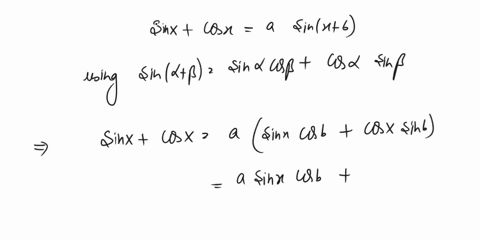 Sinx + Cosx = a Sin(x+b)
using Sin(α+β) = Sinα cosβ + Cosα Sinβ
⇒ Sinx + Cosx = a (Sinx Cosb + Cosx Sinb)
= a Sinx Cosb +